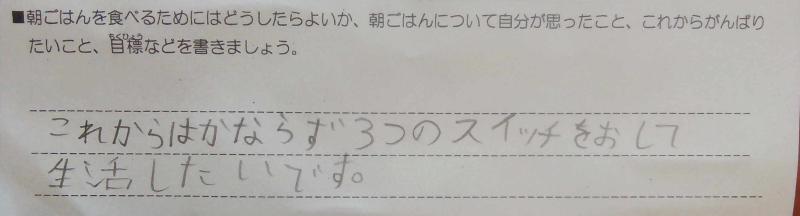 ■朝ごはんを食べるためにはどうしたらよいか、朝ごはんについて自分が思ったこと、これからがんばり
たいこと、目標などを書きましょう。
これからはかならず3つのスイッチをおして
生活したいです。